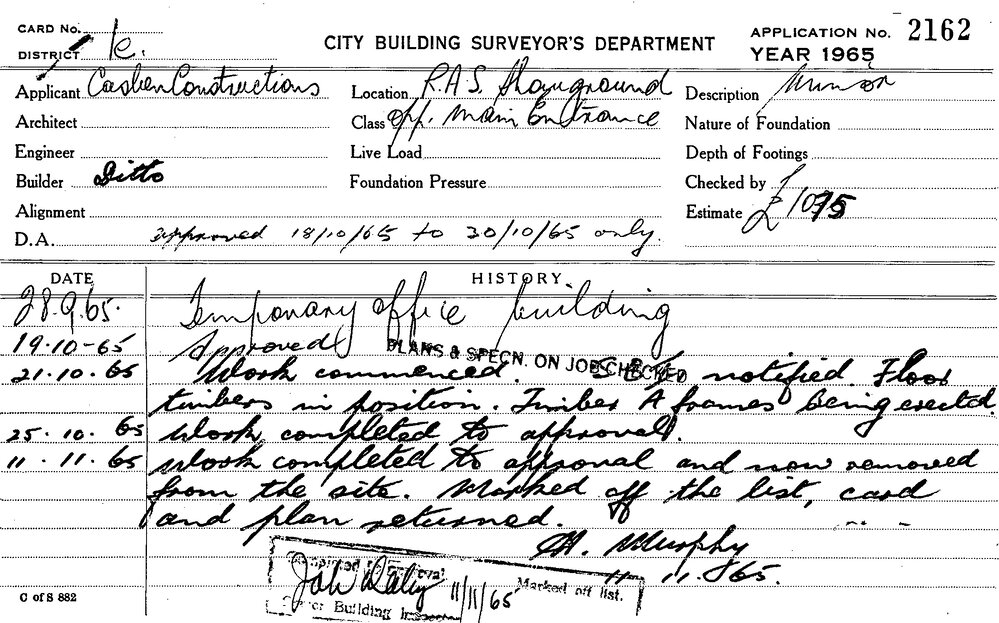 CARD No.
DISTRICT
CITY BUILDING SURVEYOR'S DEPARTMENT
APPLICATION No. 2162
YEAR 1965
Applicant Cashen Constructions
Location R.A.S. Showground
Description
Architect
Class Opp. Main Entrance
Nature of Foundation
Engineer
Live Load
Depth of Footings
Builder Ditto
Foundation Pressure
Checked by
Alignment
Estimate £1095
D.A. approved 18/10/65 to 30/10/65 only.
DATE HISTORY.
28.9.65. Temporary office building
19.10-65 Approved
PLANS & SPECN. ON JOB CHECKED
21.10.65 Work commenced. notified. Floor
timbers in position. Timber A frames being erected.
25.10.65 Work completed to approval.
11.11.65 Work completed to approval and now removed
from the site. Marked off the list, card
and plan returned.
Murphy
11.11.65.
Completed to Approval
Marked off list.
11/11/65
Building Inspector
C of S 882